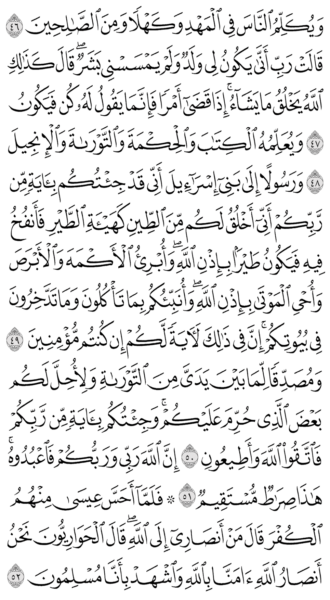 وَيُكَلِّمُ ٱلنَّاسَ فِي ٱلْمَهْدِ وَكَهْلًا وَمِنَ ٱلصَّٰلِحِينَ ٤٦
قَالَتْ رَبِّ أَنَّىٰ يَكُونُ لِي وَلَدٌ وَلَمْ يَمْسَسْنِي بَشَرٌۖ قَالَ كَذَٰلِكِ
ٱللَّهُ يَخْلُقُ مَا يَشَآءُۚ إِذَا قَضَىٰٓ أَمْرًا فَإِنَّمَا يَقُولُ لَهُۥ كُن فَيَكُونُ
٤٧ وَيُعَلِّمُهُ ٱلْكِتَٰبَ وَٱلْحِكْمَةَ وَٱلتَّوْرَىٰةَ وَٱلْإِنجِيلَ
٤٨ وَرَسُولًا إِلَىٰ بَنِيٓ إِسْرَٰٓءِيلَ أَنِّي قَدْ جِئْتُكُم بِـَٔايَةٍ مِّن
رَّبِّكُمْ أَنِّيٓ أَخْلُقُ لَكُم مِّنَ ٱلطِّينِ كَهَيْـَٔةِ ٱلطَّيْرِ فَأَنفُخُ
فِيهِ فَيَكُونُ طَيْرًۢا بِإِذْنِ ٱللَّهِۖ وَأُبْرِئُ ٱلْأَكْمَهَ وَٱلْأَبْرَصَ
وَأُحْيِ ٱلْمَوْتَىٰ بِإِذْنِ ٱللَّهِۖ وَأُنَبِّئُكُم بِمَا تَأْكُلُونَ وَمَا تَدَّخِرُونَ
فِي بُيُوتِكُمْۚ إِنَّ فِي ذَٰلِكَ لَـَٔايَةً لَّكُمْ إِن كُنتُم مُّؤْمِنِينَ ٤٩
وَمُصَدِّقًا لِّمَا بَيْنَ يَدَيَّ مِنَ ٱلتَّوْرَىٰةِ وَلِأُحِلَّ لَكُم
بَعْضَ ٱلَّذِي حُرِّمَ عَلَيْكُمْۚ وَجِئْتُكُم بِـَٔايَةٍ مِّن رَّبِّكُمْ
فَٱتَّقُوا۟ ٱللَّهَ وَأَطِيعُونِ ٥٠ إِنَّ ٱللَّهَ رَبِّي وَرَبُّكُمْ فَٱعْبُدُوهُۗ
هَٰذَا صِرَٰطٌ مُّسْتَقِيمٌ ٥١ ۞ فَلَمَّآ أَحَسَّ عِيسَىٰ مِنْهُمُ
ٱلْكُفْرَ قَالَ مَنْ أَنصَارِيٓ إِلَى ٱللَّهِۖ قَالَ ٱلْحَوَارِيُّونَ نَحْنُ
أَنصَارُ ٱللَّهِ ءَامَنَّا بِٱللَّهِ وَٱشْهَدْ بِأَنَّا مُسْلِمُونَ ٥٢